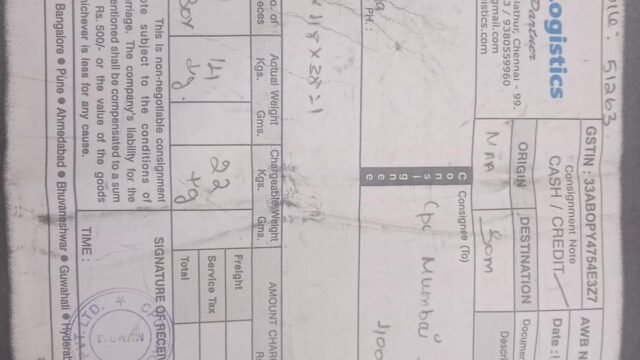 51263
Logistics
Partner
Chennai - 99.
3 / 9380559960
gistics.com
gmail.com
GSTIN : 33ABOPY4754E3Z7
Consignment Note
CASH / CREDIT
AWB N
Date :
ORIGIN
DESTINATION
Docume
MAA
Bom
Descri
PH :
Consignee
Consignee (To)
Cpc Mumbai
400
No. of
eces
Actual Weight
Kgs. Gms.
Chargeable Weight
Kgs. Gms.
AMOUNT CHAR
Box
41
kg
22
kg
Freight
Service Tax
Total
This is non-negotiable consignment
ote subject to the conditions of
rriage. The company's liability for the
entioned shall be compensated to a sum
Rs. 500/- or the value of the goods
hichever is less for any cause.
SIGNATURE OF RECEIV
TIME :
Bangalore ● Pune ● Ahmedabad ● Bhuvaneshwar ● Guwahati ● Hyderab